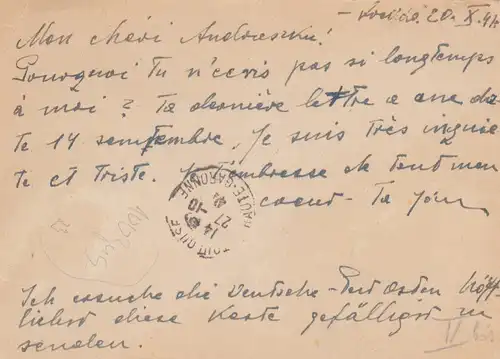 20. X. 41
Mon chéri Andrzeszku!
Pourquoi Tu n'ecris pas si longtemps
à moi? Ta dernière lettre a une da-
te 14 semtembre. Je suis très inquie-
te et triste. Je t'embrasse de tout mon
coeur - Ta
TOULOUSE
HAUTE-GARONNE
14
27
-10
41
Ich ersuche die Deutsche-Post Osten höf-
lichst diese Karte gefälligst zu
senden.